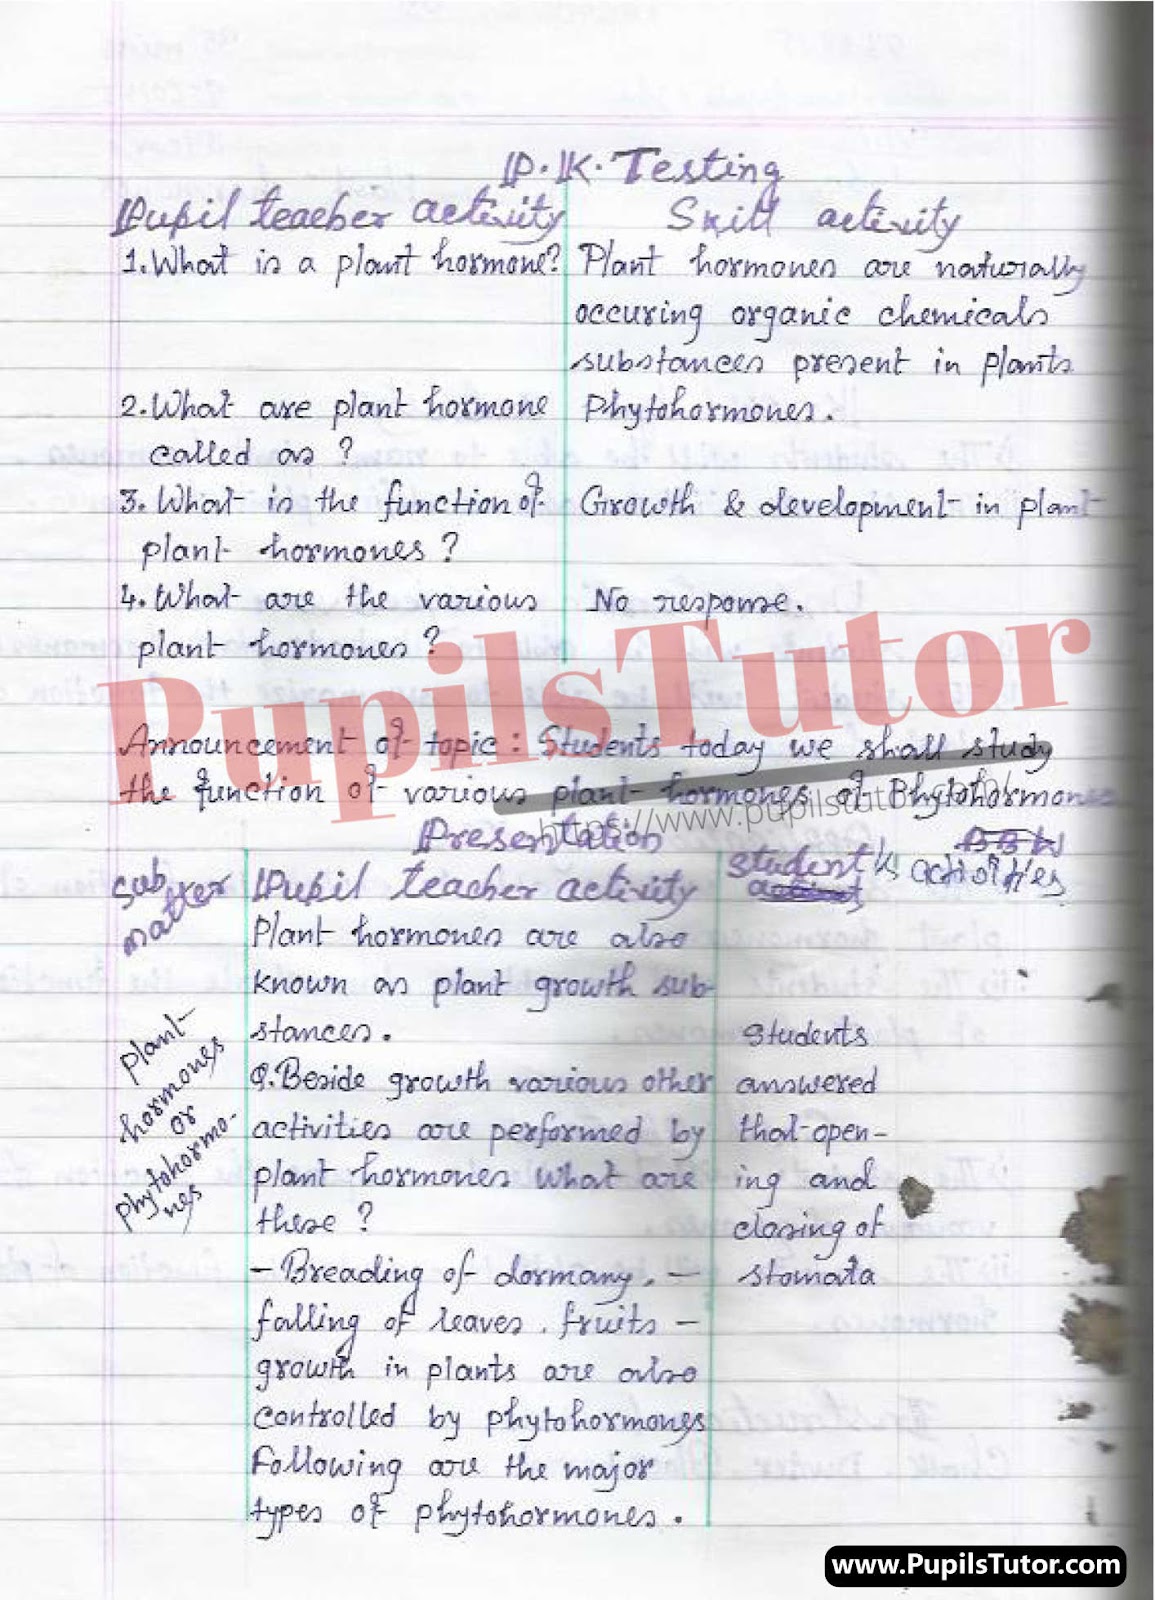 P.K. Testing
Pupil teacher activity
Skill activity
1. What is a plant hormone?
Plant hormones are naturally
occuring organic chemicals
substances present in plants
2. What are plant hormone
called as ?
Phytohormones.
3. What is the function of
plant hormones ?
Growth & development in plant
4. What are the various
plant hormones ?
No response.
PupilsTutor
Announcement of topic : Students today we shall study
the function of various plant hormones of Phytohormones
https://www.pupilstutor.com/
Presentation
Sub
matter
Pupil teacher activity
Student
activities
BBW
plant
hormones
or
phytohormo-
nes
Plant hormones are also
known as plant growth sub-
stances.
Q. Beside growth various other
activities are performed by
plant hormones what are
these ?
- Breading of dormany. -
falling of leaves. fruits -
growth in plants are also
controlled by phytohormones
Following are the major
types of phytohormones.
Students
answered
that open-
ing and
closing of
stomata
www.PupilsTutor.com